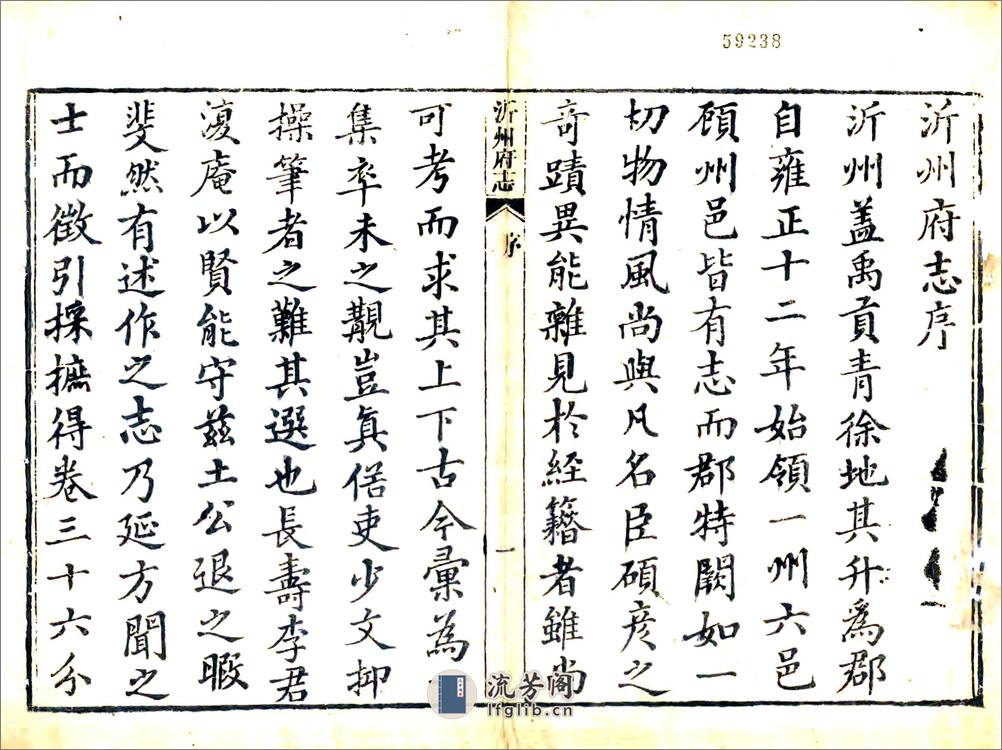 59238
沂州府志序
沂州蓋禹貢青徐地其升爲郡
自雍正十二年始領一州六邑
顧州邑皆有志而郡特闕如一
切物情風尚與凡名臣碩彦之
奇蹟異能雜見於經籍者雖尚
沂州府志
序
一
可考而求其上下古今彙為一
集率未之覯豈真俗吏少文抑
操筆者之難其選也長壽李君
澓庵以賢能守兹土公退之暇
斐然有述作之志乃延方聞之
士而徵引採摭得卷三十六分
流芳阁
lfglib.cn